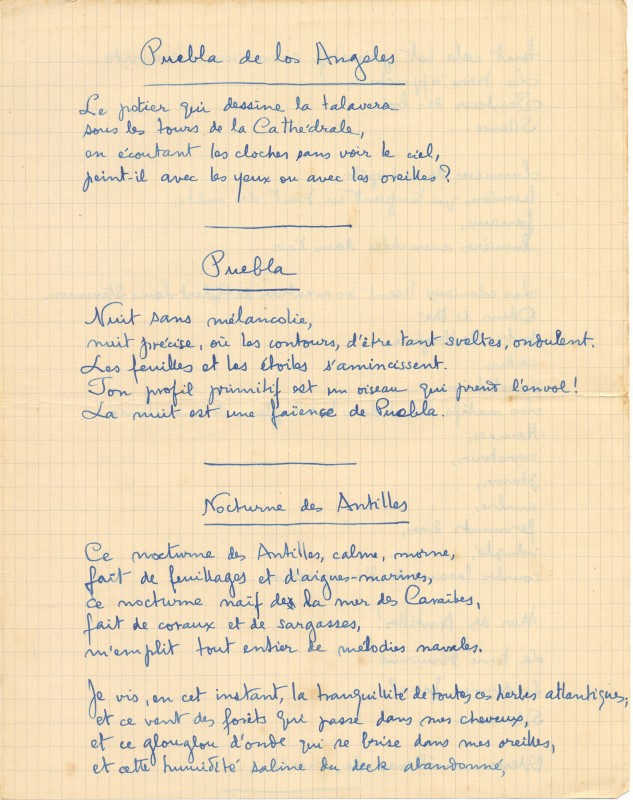 Puebla de los Angeles
Le potier qui dessine la talavera
sous les tours de la Cathédrale,
en écoutant les cloches sans voir le ciel,
peint-il avec les yeux ou avec les oreilles ?
Puebla
Nuit sans mélancolie,
nuit précise, où les contours, d'être tant sveltes, ondulent.
Les feuilles et les étoiles s'amincissent.
Ton profil primitif est un oiseau qui prend l'envol !
La nuit est une faïence de Puebla.
Nocturne des Antilles
Ce nocturne des Antilles, calme, morne,
fait de feuillages et d'aigues-marines,
ce nocturne naïf de la mer des Caraïbes,
fait de coraux et de sargasses,
m'emplit tout entier de mélodies navales.
Je vis, en cet instant, la tranquillité de toutes ces herbes atlantiques,
et ce vent des forêts qui passe dans mes cheveux,
et ce glouglou d'onde qui se brise dans mes oreilles,
et cette humidité saline du deck abandonné,